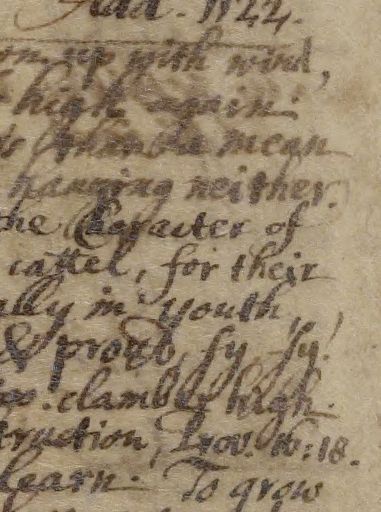 Add. 1122.
up with wind,
high again:
mean
hanging neither.
the Caracter of
cattel, for their
ally in youth,
& proud, fy fy!
clamber high.
truction, Prov. 16:18.
learn. To grow